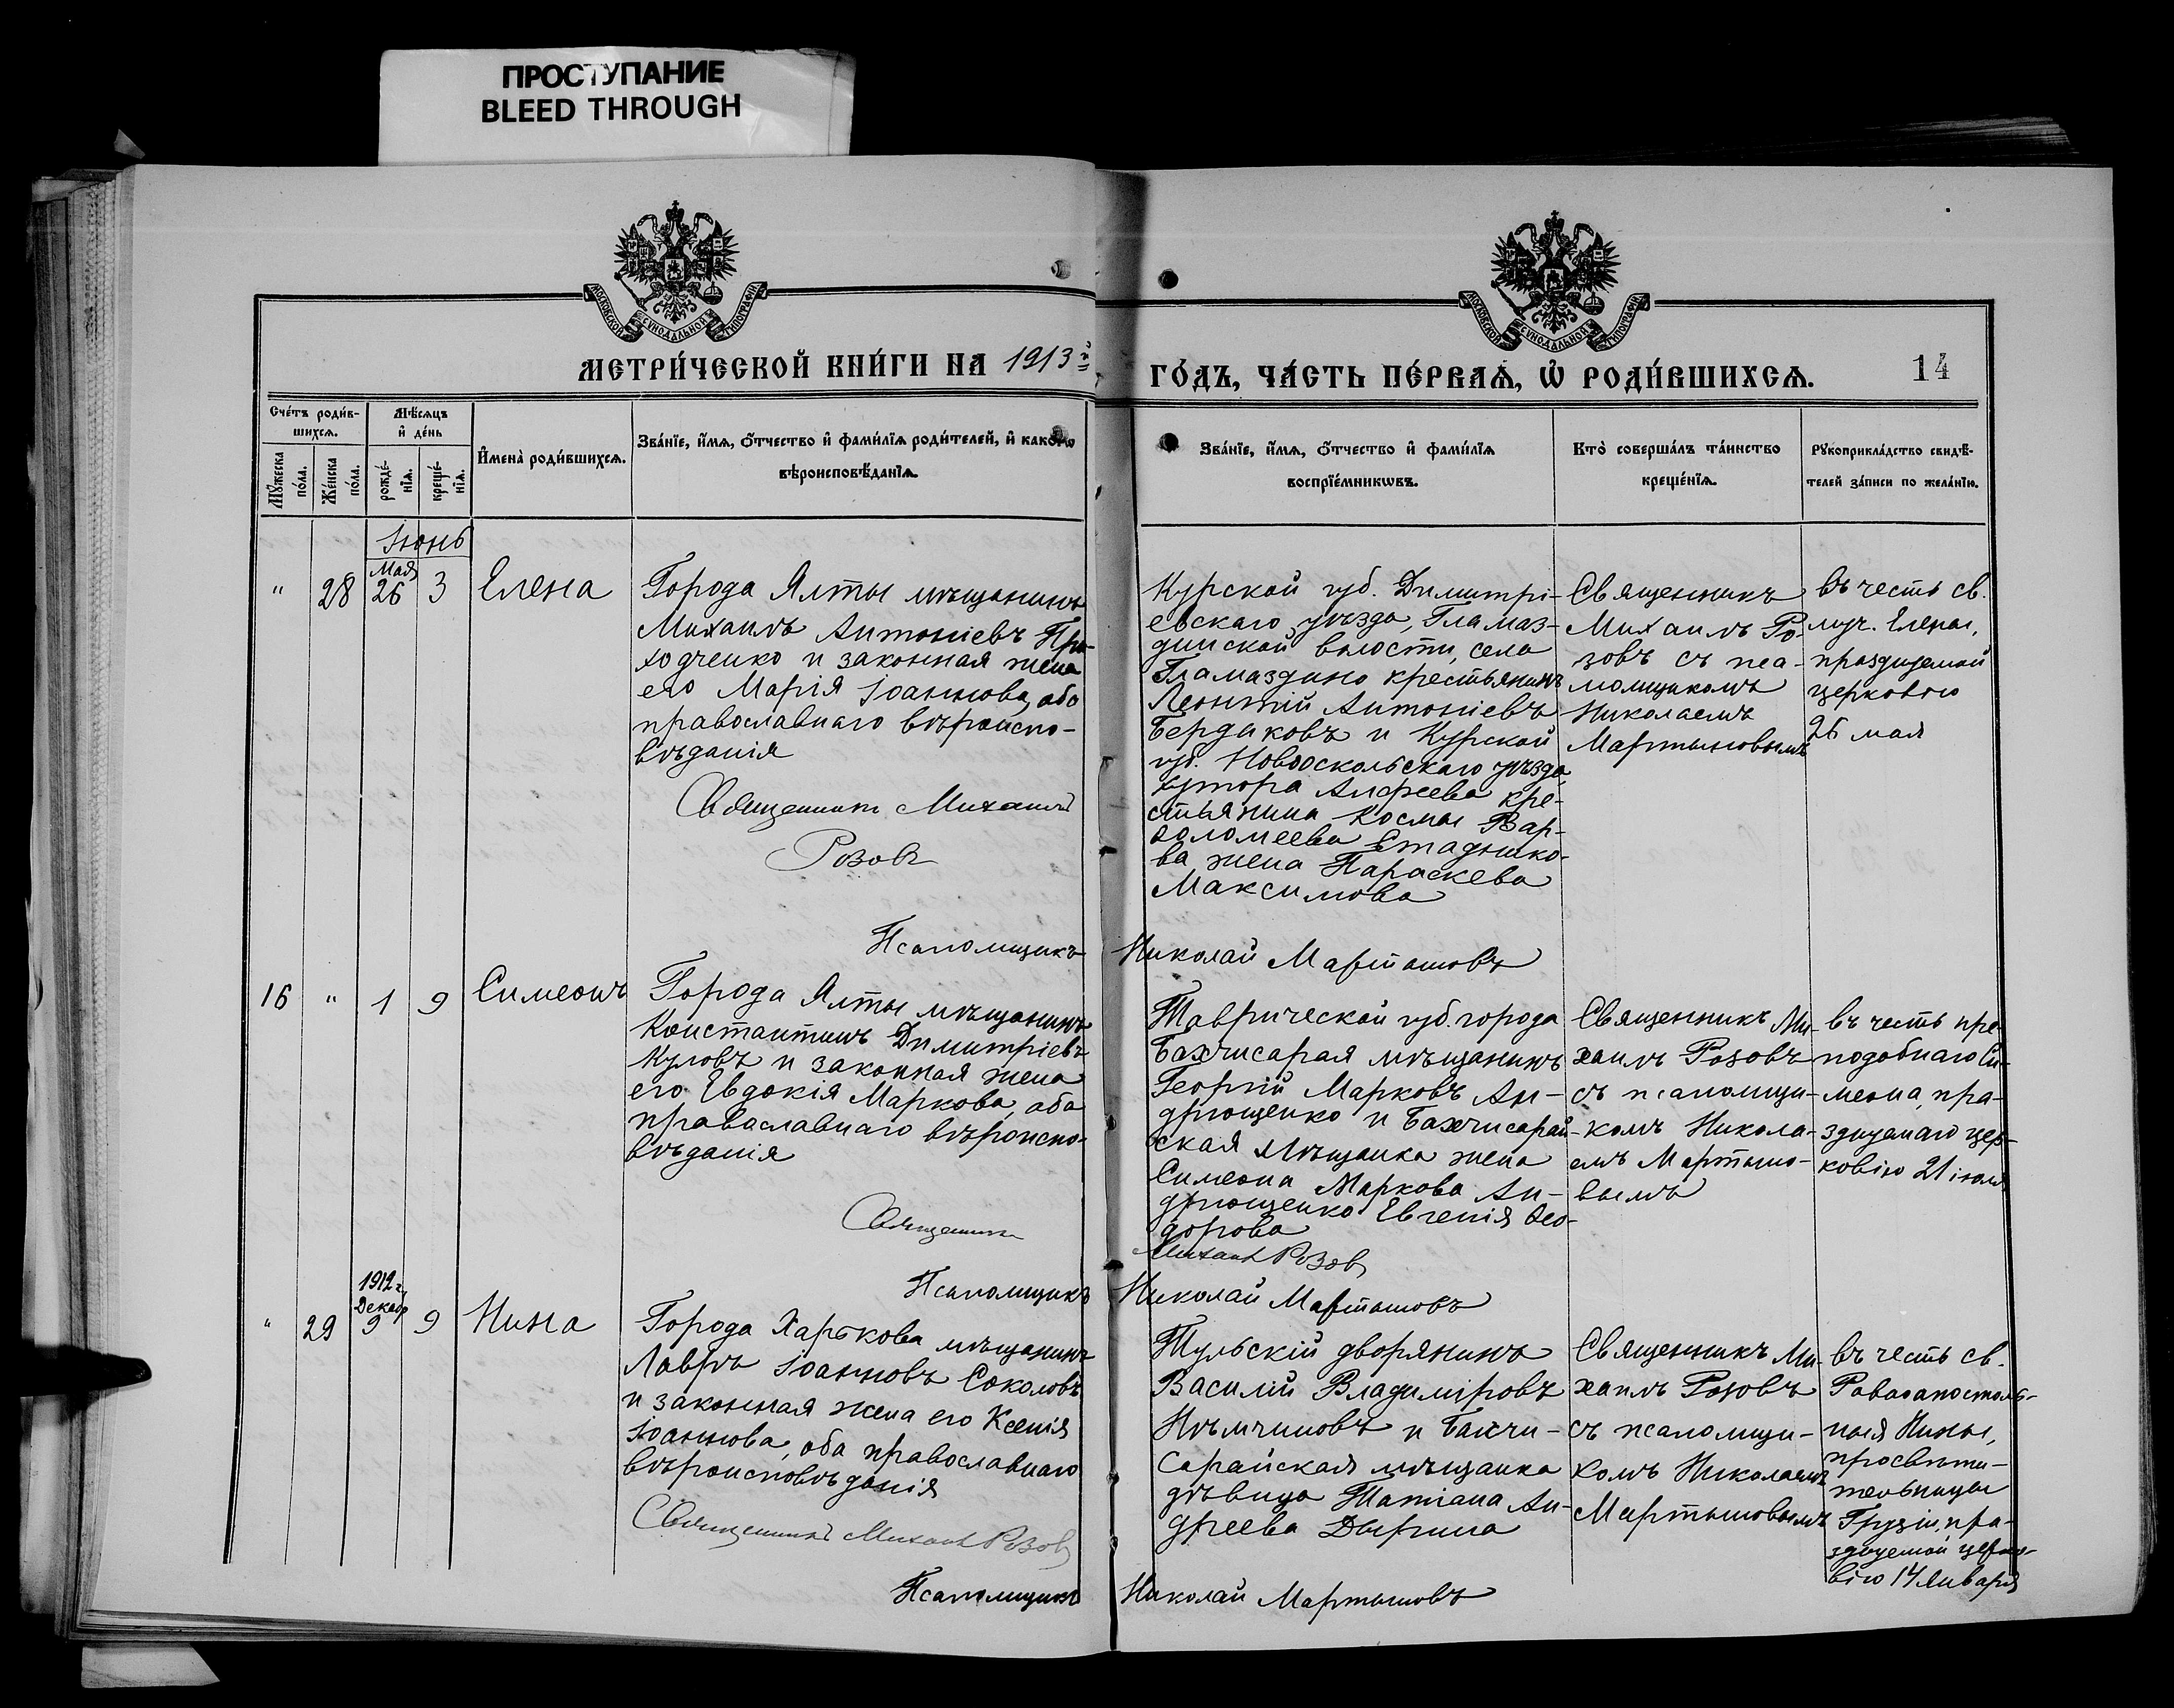 ПРОСТУПАНИЕ
BLEED THROUGH
МОСКОВСКОЙ СѴНОДАЛЬНОЙ ТИПОГРАФІИ
МОСКОВСКОЙ СѴНОДАЛЬНОЙ ТИПОГРАФІИ
МЕТРИ́ЧЕСКОЙ КНИ́ГИ НА 1913й
ГО́ДЪ, ЧА́СТЬ ПЕ́РВАѦ, Ѡ҆ РОДИ́ВШИХСѦ.
14
Сче́тъ роди́в-
шихсѧ.
Мꙋ́жеска
по́ла.
Же́нска
по́ла.
Мѣ́сѧцъ
и҆ де́нь
рожде́-
нїѧ.
креще́-
нїѧ.
И҆мена̀ роди́вшихсѧ.
Зва́нїе, и҆́мѧ, ѻ҆́тчество и҆ фами́лїѧ роди́телей, и҆ како́гѡ
вѣроисповѣ́данїѧ.
Зва́нїе, и҆́мѧ, ѻ҆́тчество и҆ фами́лїѧ
воспрїе́мникѡвъ.
Кто̀ соверша́лъ та́инство
креще́нїѧ.
Рꙋкоприкла́дство свидѣ́-
телей за́писи по жела́нїю.
Іюнь
"
28
Мая
26
3
Елена
Города Ялты мѣщанинъ
Михаилъ Антоніевъ При-
ходченко и законная жена
его Марія Іоаннова, оба
православнаго вѣроиспо-
вѣданія
Священникъ Михаилъ
Розовъ
Курской губ. Димитрі-
евскаго уѣзда, Гламаз-
динской волости, села
Гламаздино крестьянинъ
Леонтій Антоніевъ
Бердаковъ и Курской
губ. Новооскольскаго уѣзда
хутора Андреева кре-
стьянина Космы Вар-
ѳоломеева
ва жена Параскева
Максимова
Священникъ
Михаилъ Ро-
зовъ съ пса-
ломщикомъ
Николаемъ
Мартыновымъ
въ честь св.
муч. Елены,
празднуемой
церковію
26 мая
Псаломщикъ Николай Мартыновъ
16
"
1
9
Симеонъ
Города Ялты мѣщанинъ
Константинъ Димитріевъ
Куловъ и законная жена
его Евдокія Маркова, оба
православнаго вѣроиспо-
вѣданія
Священникъ
Таврической губ. города
Бахчисарая мѣщанинъ
Георгій Марковъ Ан-
дрющенко и Бахчисарай-
ская мѣщанка жена
Симеона Маркова Ан-
дрющенко Евгенія Ѳео-
дорова
Михаилъ Розовъ
Священникъ Ми-
хаилъ Розовъ
съ псаломщи-
комъ Никола-
емъ Мартыно-
вымъ
въ честь пре-
подобнаго Си-
меона, пра-
зднуемаго цер-
ковію 21 іюля
Псаломщикъ Николай Мартыновъ
"
29
1912 г.
Декабр
9
9
Нина
Города Харькова мѣщанинъ
Лавръ Іоанновъ Соколовъ
и законная жена его Ксенія
Іоаннова, оба православнаго
вѣроисповѣданія
Священникъ Михаилъ Розовъ
Тульскій дворянинъ
Василій Владиміровъ
Нѣмчиновъ и Бахчи-
сарайская мѣщанка
дѣвица Татіана Ан-
дреева Дырина
Священникъ Ми-
хаилъ Розовъ
съ псаломщи-
комъ Николаемъ
Мартыновымъ
въ честь св.
Равноапостоль-
ныя Нины,
просвѣти-
тельницы
Грузіи, пра-
зднуемой церко-
вію 14 Января
Псаломщикъ Николай Мартыновъ